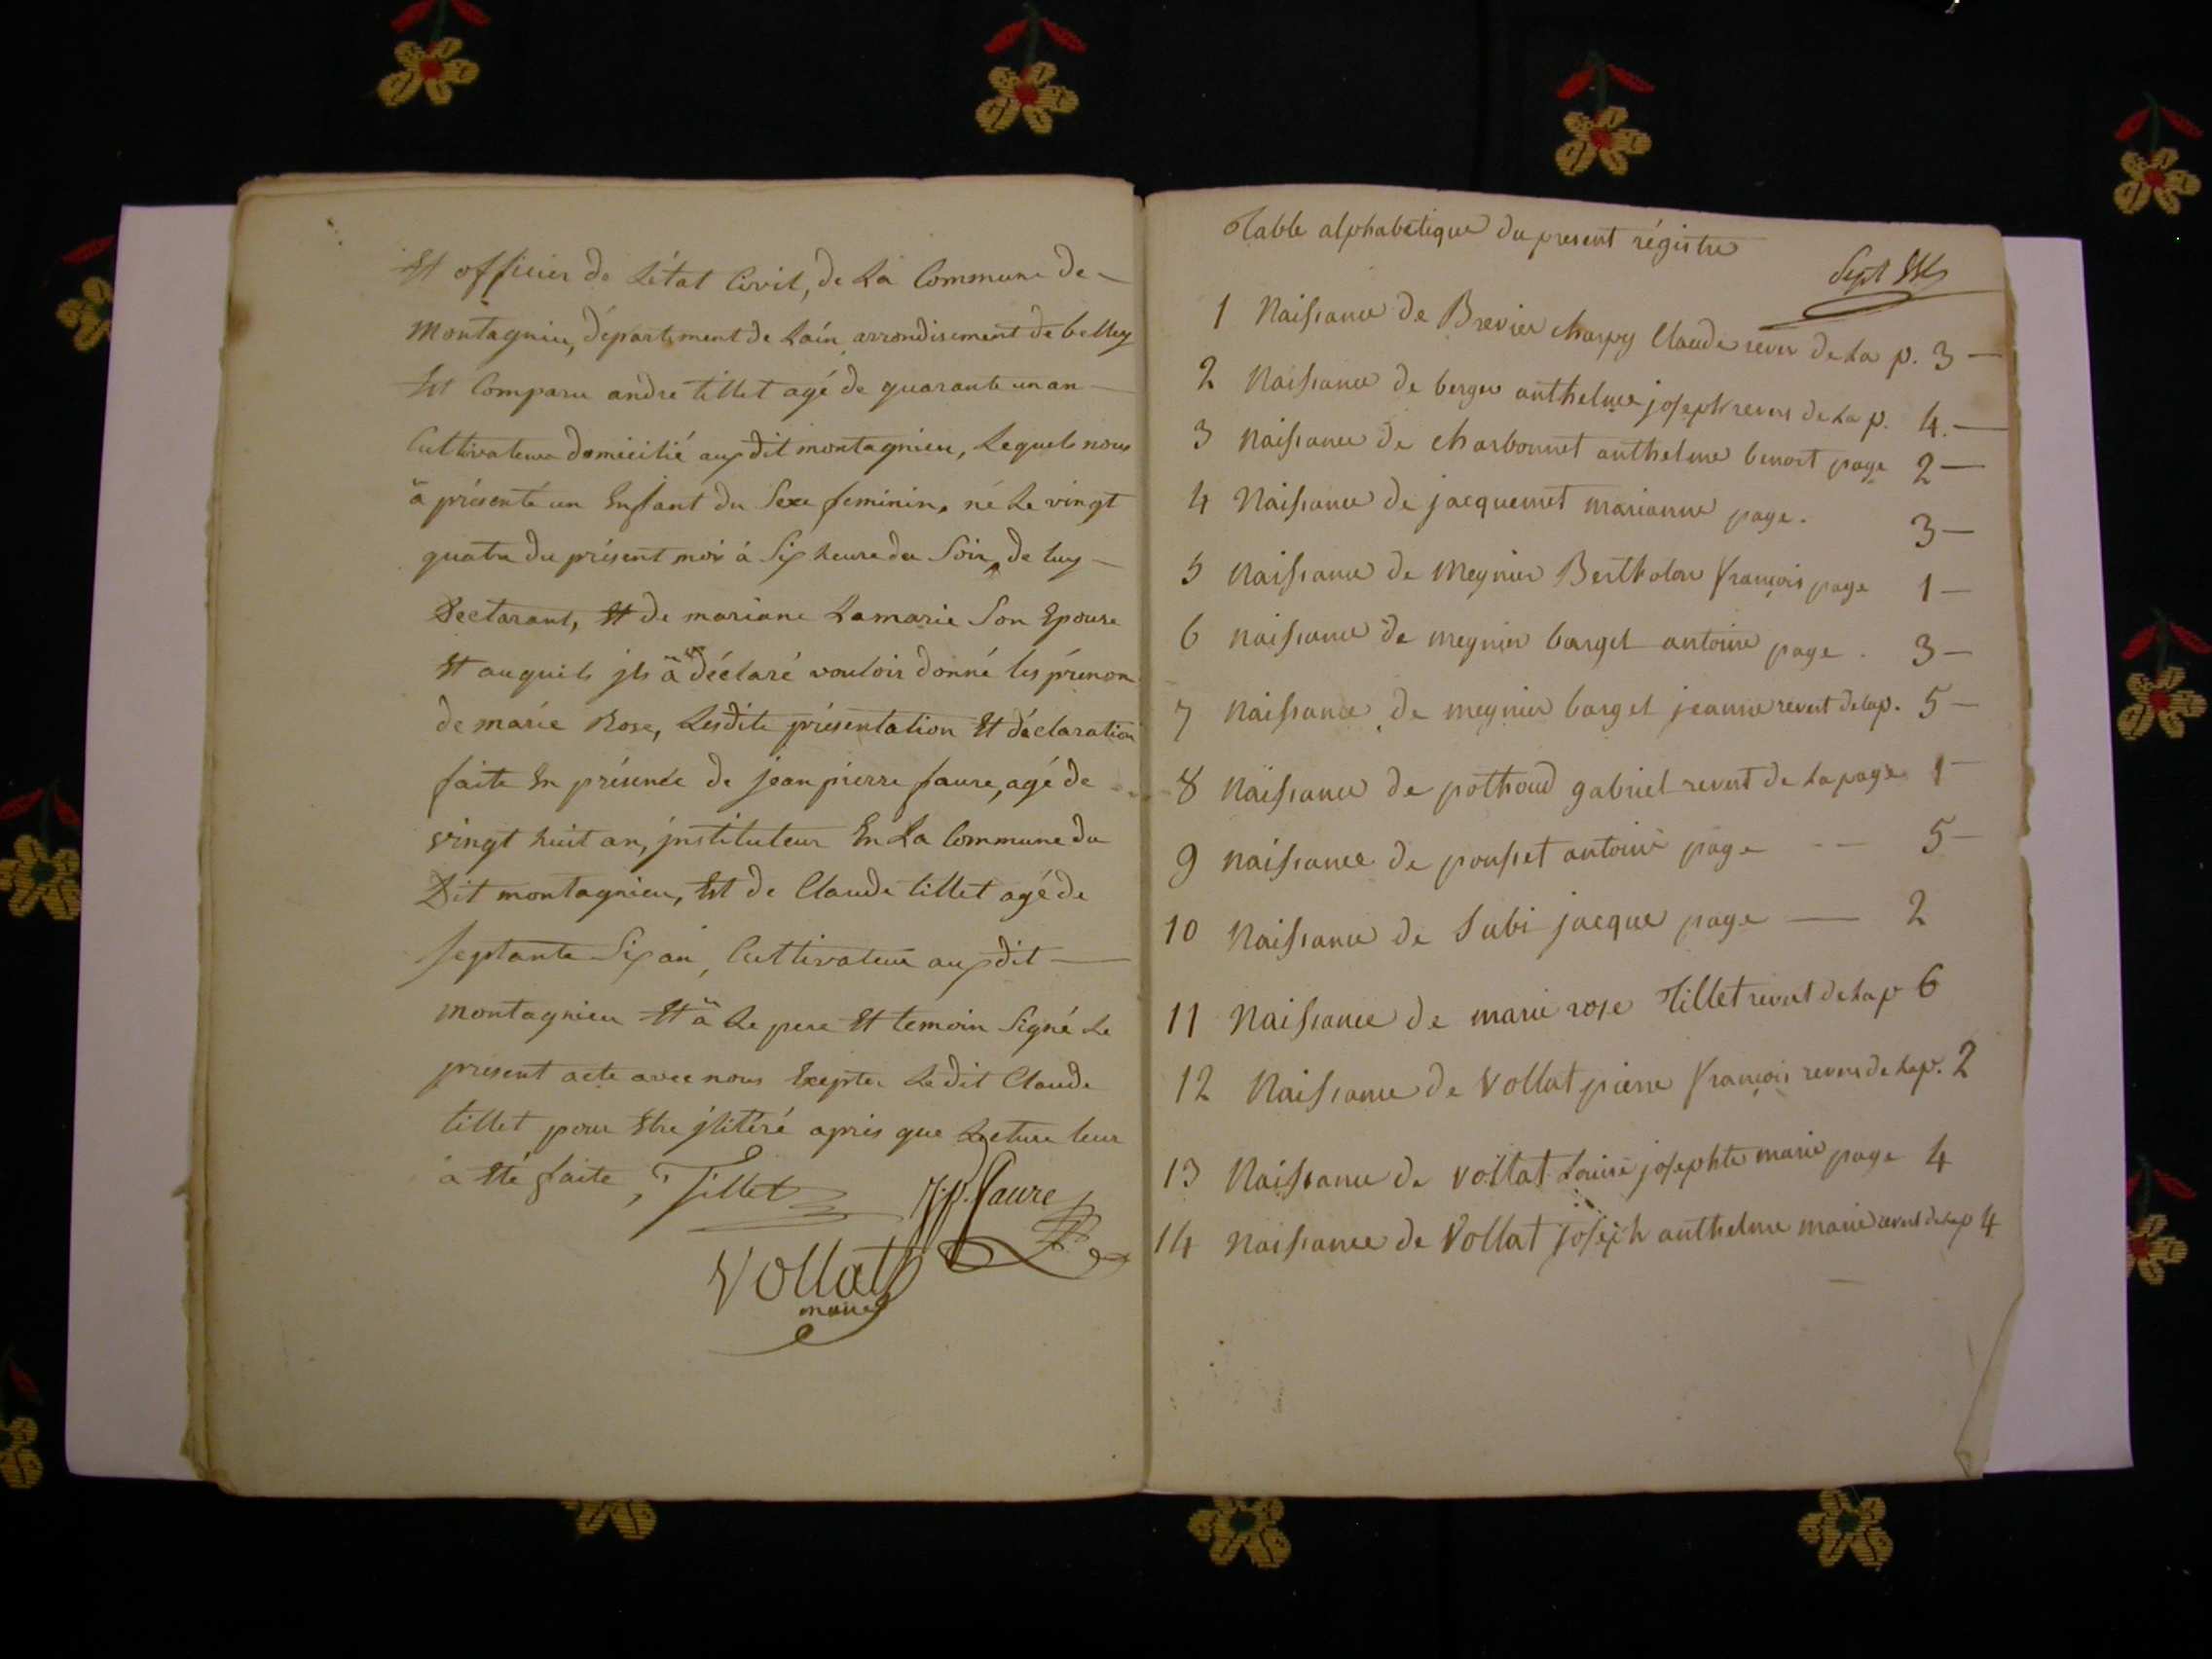 Et officier de Létat Civil, de La Commune de
Montagnieu, département de Lain arrondisement de belley
Est Comparu andré tillet agé de quarante un an
Cultivateur domicilié aux dit montagnieu, Lequels nous
à présenté un Enfant du Sexe feminin, né Le vingt
quatre du présent moi à Six heure du Soir, de luy
Déclarant, Et de mariane Lamarie Son Epouse
Et auquels jls à déclaré vouloir donné les prénom
de marie Rose, Lesdite présentation Et déclaration
faite En présence de jean pierre faure, agé de
vingt huit an, jnstituteur En La Commune du
Dit montagnieu, Est de Claude tillet agé de
septante Six an, Cultivateur aux dit
montagnieu Et à Le pere Et temoin Signé Le
présent acte avec nous Exepter Ledit Claude
tillet pour Etre jlitéré apris que Lecture leur
à Eté faite, Tillet J.p. faure
Vollat
maire
Table alphabétique du present régistre
Sept
1 Naissance de Brevier charpy Claude revers de La p. 3
2 Naissance de berger anthelme joseph revers de La p. 4.
3 naissance de charbonnet anthelme benoit page 2
4 Naissance de jacquemet marianne page. 3
5 naissance de Meynier Bertholon françois page 1
6 naissance de meynier barget antoine page . 3
7 naissance de meynier barget jeanne revert de lap. 5
8 naissance de pothoud gabriel revert de La page 1
9 naissance de pousset antoine page 5
10 Naissance de Subi jacque page 2
11 Naissance de marie rose Tillet revert de La p 6
12 Naissance de Vollat pierre françois revers de La p. 2
13 Naissance de vollat Louise josephte marie page 4
14 naissance de Vollat joseph anthelme marie revert de Lap 4